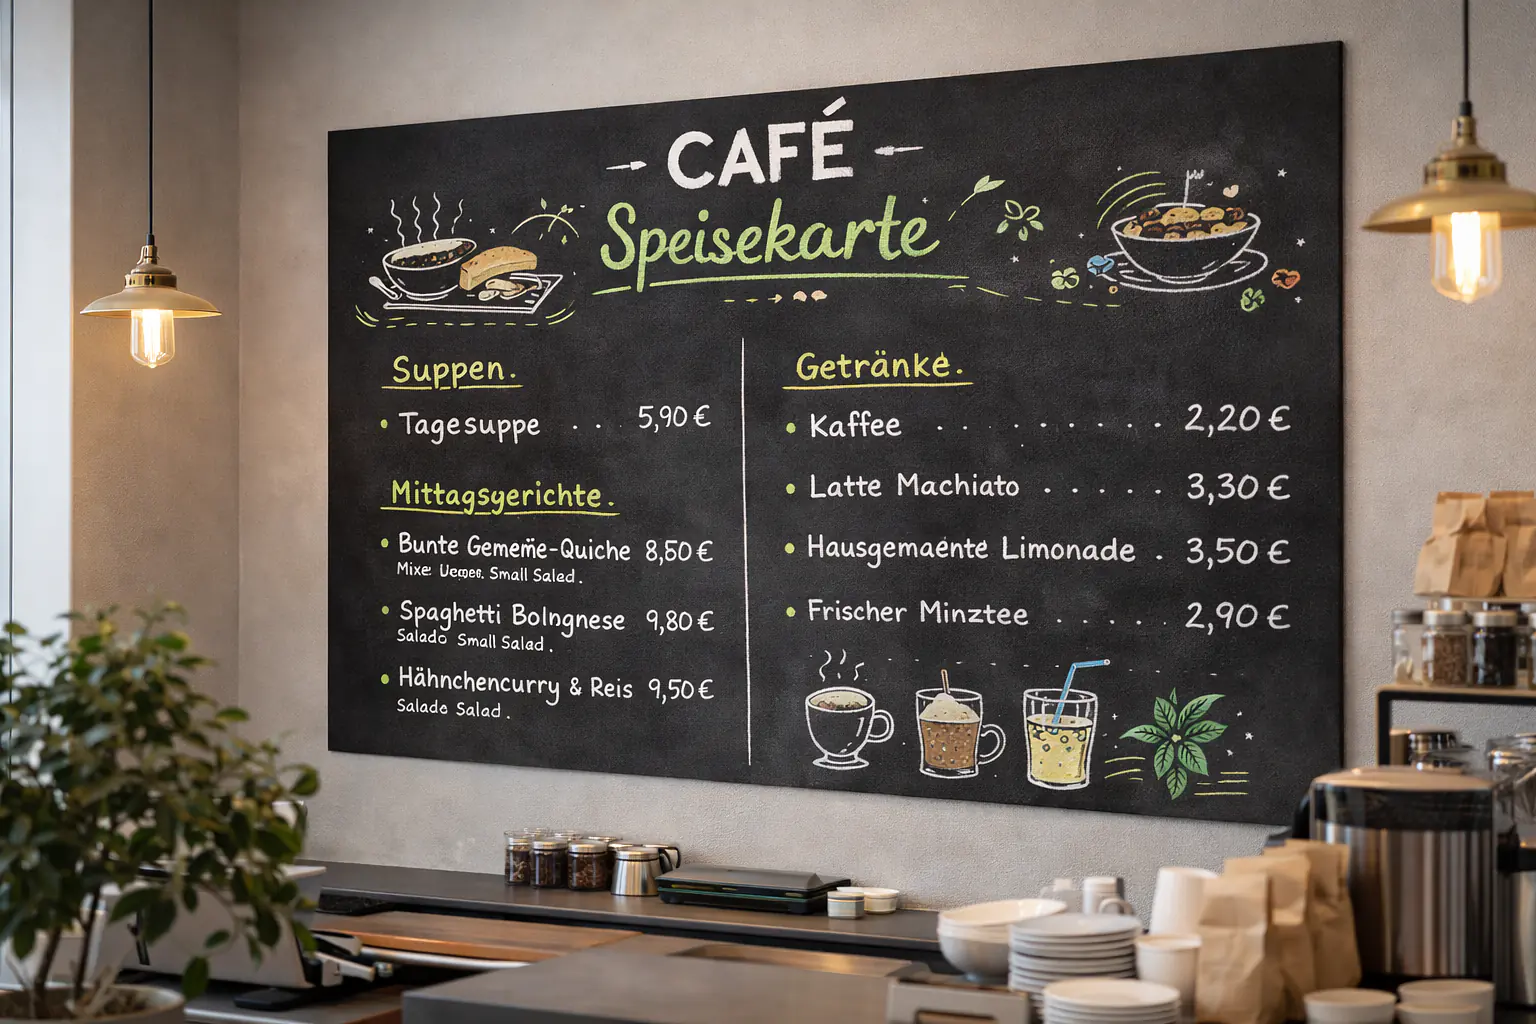 CAFÉ
Speisekarte
Suppen.
Tagesuppe . . . 5,90 €
Mittagsgerichte.
Bunte Gemeine-Quiche 8,50 €
Small Salad.
Spaghetti Bolngnese 9,80 €
Salado Small Salad.
Hähnchencurry & Reis 9,50 €
Salado Salad.
Getränke.
Kaffee . . . . . . . . . 2,20 €
Latte Machiato . . . . . 3,30 €
Hausgemaente Limonade . 3,50 €
Frischer Minztee . . . . . 2,90 €